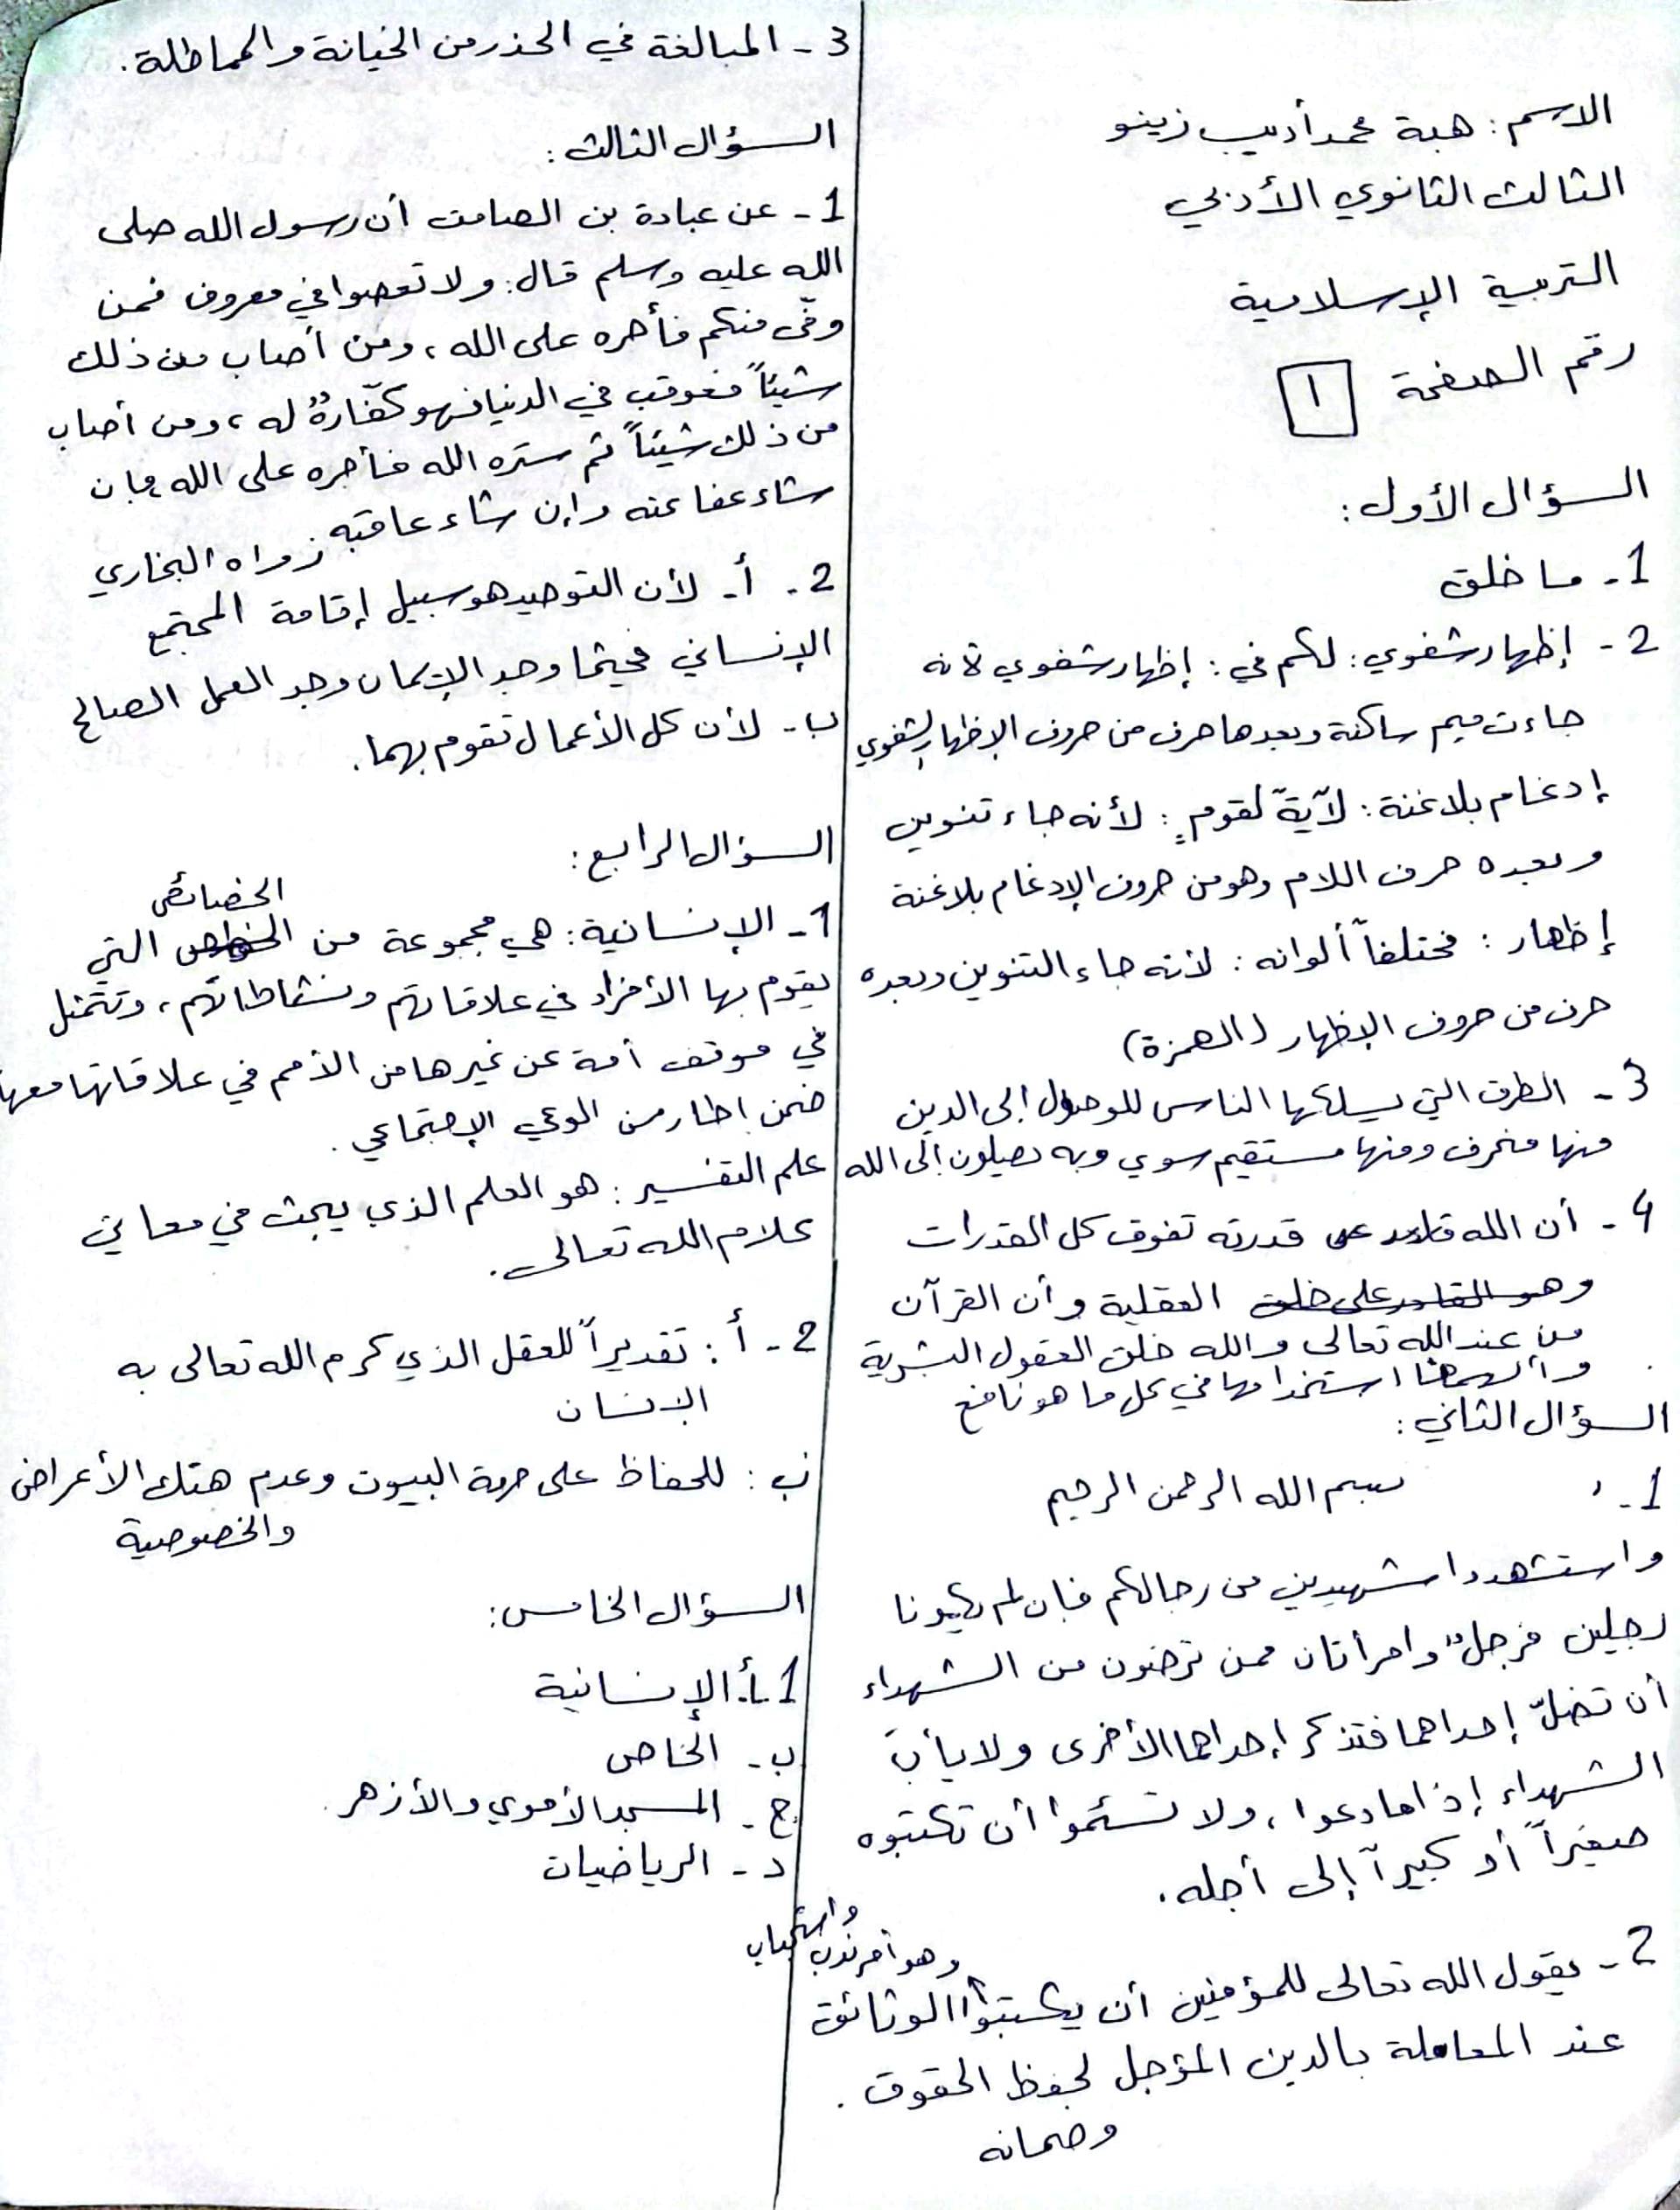 الاسم: هبة محمد أديب زينو
الثالث الثانوي الأدبي
التربية الإسلامية
رقم الصفحة ١
السؤال الأول:
1- ما خلق
2- إظهار شفوي: لكم في: إظهار شفوي لأنه
جاءت ميم ساكنة وبعدها حرف من حروف الإظهار الشفوي
إدغام بلاغنة: لآيةً لقومٍ: لأنه جاء تنوين
وبعده حرف اللام وهو من حروف الإدغام بلاغنة
إظهار: مختلفاً ألوانه: لأنه جاء التنوين وبعده
حرف من حروف الإظهار (الهمزة)
3- الطرق التي يسلكها الناس للوصول إلى الدين
منها منحرف ومنها مستقيم سوي وبه يصلون إلى الله
4- أن الله قدرته تفوق كل القدرات
وهو القادر على خلق العقلية وأن القرآن
من عند الله تعالى والله خلق العقول البشرية
وألهمنا استخدامها في كل ما هو نافع
السؤال الثاني:
1- بسم الله الرحمن الرحيم
واستشهدوا شهيدين من رجالكم فإن لم يكونا
رجلين فرجلٌ وامرأتان ممن ترضون من الشهداء
أن تضلّ إحداهما فتذكر إحداهما الأخرى ولا يأبَ
الشهداء إذا ما دعوا، ولا تسئموا أن تكتبوه
صغيراً أو كبيراً إلى أجله.
وهو أمر ندب واستحباب
2- يقول الله تعالى للمؤمنين أن يكتبوا الوثائق
عند المعاملة بالدين المؤجل لحفظ الحقوق.
وضمانه
3- المبالغة في الحذر من الخيانة والمماطلة.
السؤال الثالث:
1- عن عبادة بن الصامت أن رسول الله صلى
الله عليه وسلم قال: ولا تعصوا في معروف فمن
وفّى منكم فأجره على الله، ومن أصاب من ذلك
شيئاً فعوقب في الدنيا فهو كفّارةٌ له، ومن أصاب
من ذلك شيئاً ثم ستره الله فأجره على الله فإن
شاء عفا عنه وإن شاء عاقبه رواه البخاري
2- أ- لأن التوحيد هو سبيل إقامة المجتمع
الإنساني فحيثما وجد الإيمان وجد العمل الصالح
ب- لأن كل الأعمال تقوم بهما.
السؤال الرابع:
الخصائص
1- الإنسانية: هي مجموعة من التي
يقوم بها الأفراد في علاقاتهم ونشاطاتهم، وتتمثل
في موقف أمة عن غيرها من الأمم في علاقاتها معها
ضمن إطار من الوعي الإجتماعي.
علم التفسير: هو العلم الذي يبحث في معاني
كلام الله تعالى.
2- أ: تقديراً للعقل الذي كرم الله تعالى به
الإنسان
ب: للحفاظ على حرمة البيوت وعدم هتك الأعراض
والخصوصية
السؤال الخامس:
1- أ. الإنسانية
ب- الخاص
ج- المسجد الأموي والأزهر.
د- الرياضيات